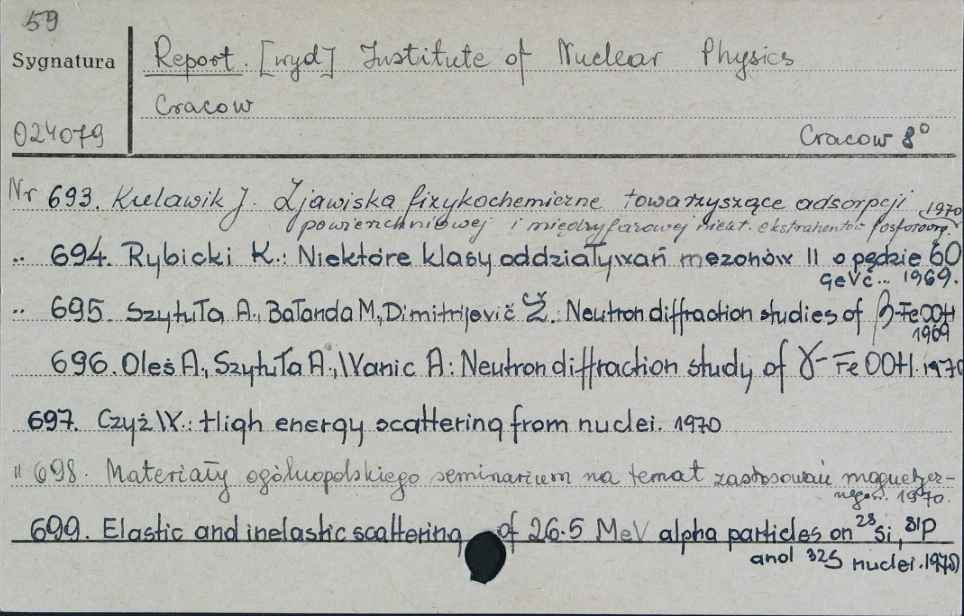 59
Sygnatura
Report. [wyd] Institute of Nuclear Physics
Cracow
024079
Cracow 8°
Nr 693. Kulawik J. Zjawiska fizykochemiczne towarzyszące adsorpcji 1970
powierzchniowej i międzyfazowej niekt. ekstrahentów fosforoorg.
" 694. Rybicki K.: Niektóre klasy oddziaływań mezonów II o pędzie 60
GeVč... 1969.
" 695. Szytuła A., Bałanda M., Dimitrijevič Ž.: Neutron diffraction studies of β-FeOOH
1969
696. Oleś A., Szytuła A., Wanic A: Neutron diffraction study of γ-FeOOH. 1970
697. Czyż W.: High energy scattering from nuclei. 1970
" 698. Materiały ogólnopolskiego seminarium na temat zastosowań
1970.
699. Elastic and inelastic scattering of 26.5 MeV alpha particles on 28Si, 31P
and 32S nuclei. 1970